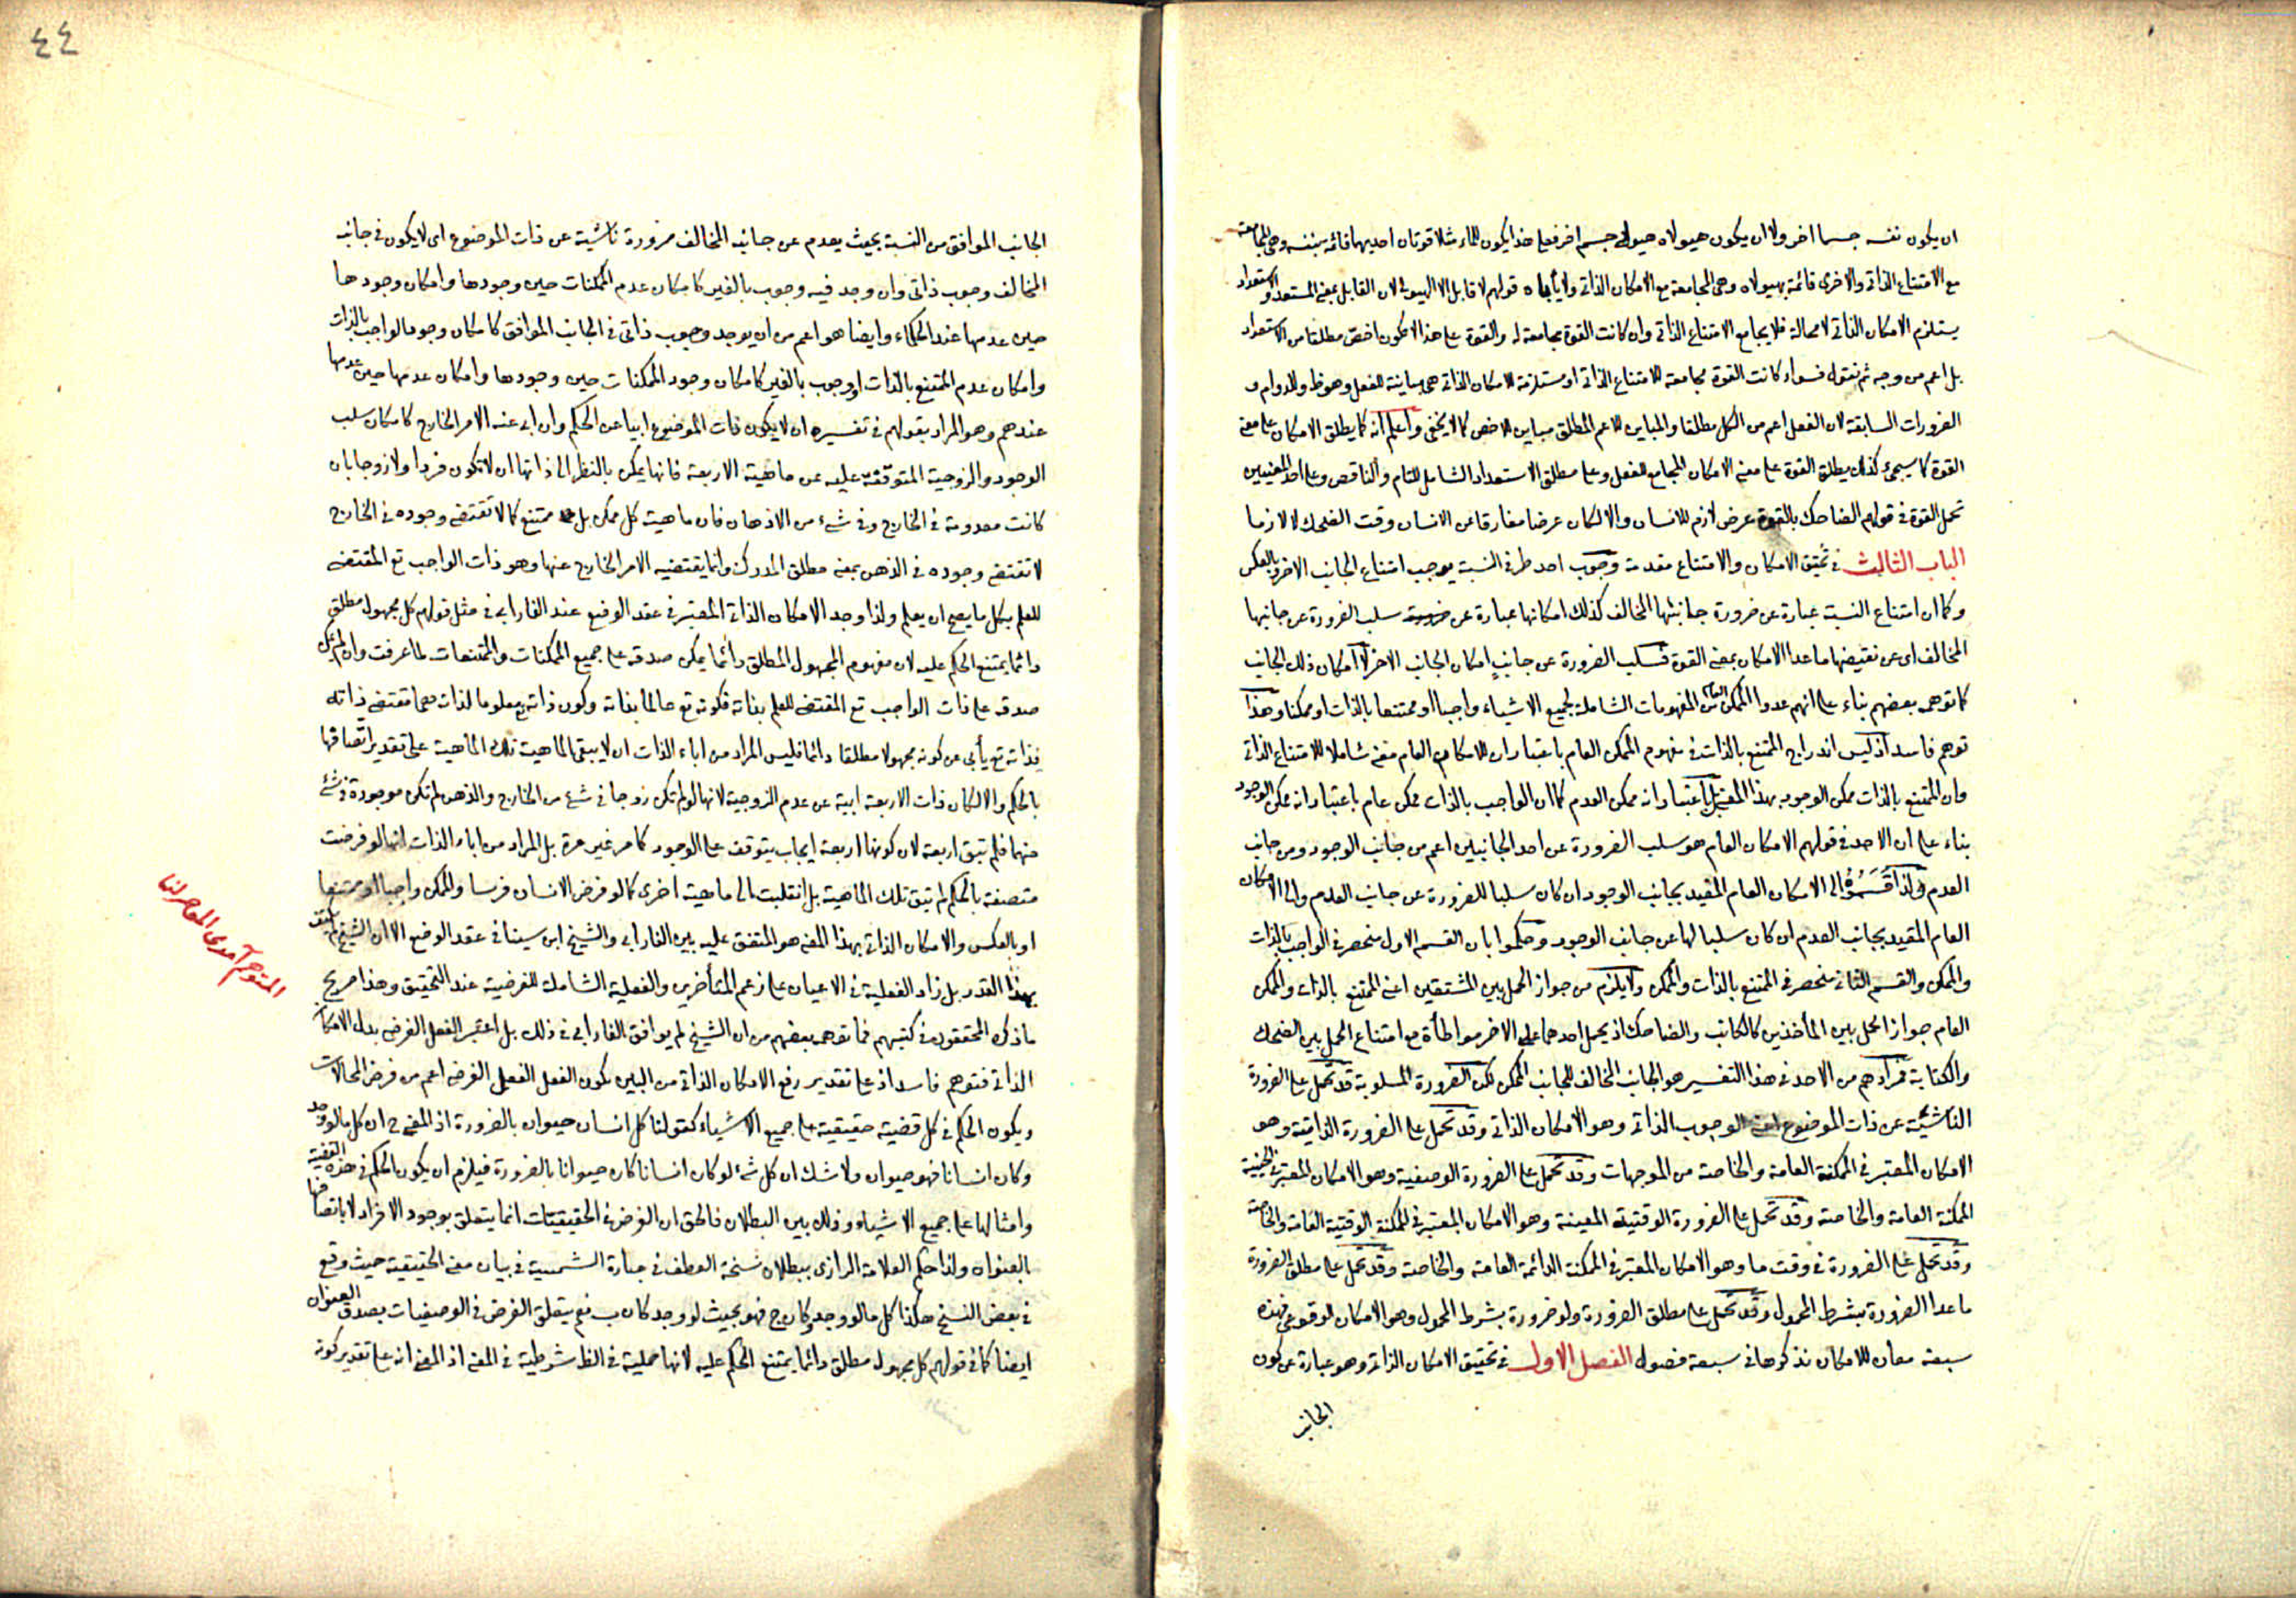 ان يكون نفسه جسما اخر ولا ان يكون هيولاه هيولى جسم اخر فعلى هذا يكون للماء مثلا قوتان احديهما قائمة بنفسه وهى المجامعة
مع الامتناع الذاتى والاخرى قائمة بهيولاه وهى المجامعة مع الامكان الذاتى ولا يأباه قولهم لا قابل الا الهيولى لان القابل بمعنى المستعد والاستعداد
يستلزم الامكان الذاتى لا محالة فلا يجامع الامتناع الذاتى وان كانت القوة مجامعة له والقوة على هذا لا تكون اخص مطلقا من الاستعداد
بل اعم من وجه ثم نقول فسواء كانت القوة مجامعة للامتناع الذاتى او مستلزمة للامكان الذاتى هى مباينة للفعل وهو ظ وللدوام و
الضرورات السابقة لان الفعل اعم من الكل مطلقا والمباين للاعم المطلق مباين للاخص كما لا يخفى واعلم انه كما يطلق الامكان على معنى
القوة كما سيجئ كذلك يطلق القوة على معنى الامكان المجامع للفعل وعلى مطلق الاستعداد الشامل للتام والناقص وعلى احد المعنيين
تحمل القوة فى قولهم الضاحك بالقوة عرض لازم للانسان والا لكان عرضا مفارقا عن الانسان وقت الضحك لا لازما
الباب الثالث فى تحقيق الامكان والامتناع مقدمة وجوب احد طرفى النسبة يوجب امتناع الجانب الاخر وبالعكس
وكما ان امتناع النسبة عبارة عن ضرورة جانبها المخالف كذلك امكانها عبارة عن سلب الضرورة عن جانبها
المخالف اى عن نقيضها ما عدا الامكان بمعنى القوة فسلب الضرورة عن جانب امكان الجانب الاخر لا امكان ذلك الجانب
كما توهمه بعضهم بناء على انهم عدوا الممكن العام من المفهومات الشاملة لجميع الاشياء واجبا او ممتنعا بالذات او ممكنا وهذا
توهم فاسد اذ ليس اندراج الممتنع بالذات فى مفهوم الممكن العام باعتبار ان للامكان العام معنى شاملا للامتناع الذاتى
وان الممتنع بالذات ممكن الوجود بهذا المعنى بل باعتبار انه ممكن العدم كما ان الواجب بالذات ممكن عام باعتبار انه ممكن الوجود
بناء على ان الاحد فى قولهم الامكان العام هو سلب الضرورة عن احد الجانبين اعم من جانب الوجود ومن جانب
العدم ولذا قسموه الى الامكان العام المقيد بجانب الوجود ان كان سلبا للضرورة عن جانب العدم والى الامكان
العام المقيد بجانب العدم ان كان سلبا لها عن جانب الوجود وحكموا بان القسم الاول منحصر فى الواجب بالذات
والممكن والقسم الثانى منحصر فى الممتنع بالذات والممكن ولا يلزم من جواز الحمل بين المشتقين اعنى الممتنع بالذات والممكن
العام جواز الحمل بين المأخذين كالكاتب والضاحك اذ يحمل احدهما على الاخر مواطأة مع امتناع الحمل بين الضحك
والكتابة فمرادهم من الاحد فى هذا التفسير هو الجانب المخالف للجانب الممكن لكن الضرورة المسلوبة قد تحمل على الضرورة
الناشئة عن ذات الموضوع اعنى الوجوب الذاتى وهو الامكان الذاتى وقد تحمل على الضرورة الذاتية وهو
الامكان المعتبر فى الممكنة العامة والخاصة من الموجهات وقد تحمل على الضرورة الوصفية وهو الامكان المعتبر فى الحينية
الممكنة العامة والخاصة وقد تحمل على الضرورة الوقتية المعينة وهو الامكان المعتبر فى الممكنة الوقتية العامة والخاصة
وقد تحمل على الضرورة فى وقت ما وهو الامكان المعتبر فى الممكنة الدائمة العامة والخاصة وقد تحمل على مطلق الضرورة
ما عدا الضرورة بشرط المحمول وقد تحمل على مطلق الضرورة ولو ضرورة بشرط المحمول وهو الامكان الوقوعى فهذه
سبعة معان للامكان نذكرها فى سبعة فصول الفصل الاول فى تحقيق الامكان الذاتى وهو عبارة عن كون
الجانب
٤٤
الجانب الموافق من النسبة بحيث يعدم عن جانبه المخالف ضرورة ناشئة عن ذات الموضوع اى لا يكون فى جانبه
المخالف وجوب ذاتى وان وجد فيه وجوب بالغير كامكان عدم الممكنات حين وجودها وامكان وجودها
حين عدمها عند الحكماء وايضا هو اعم من ان يوجد وجوب ذاتى فى الجانب الموافق كامكان وجود الواجب بالذات
وامكان عدم الممتنع بالذات او وجوب بالغير كامكان وجود الممكنات حين وجودها وامكان عدمها حين عدمها
عندهم وهو المراد بقولهم فى تفسيره ان لا يكون ذات الموضوع ابيا عن الحكم وان ابى عنه الامر الخارج كامكان سلب
الوجود والزوجية المتوقفة عليه عن ماهية الاربعة فانها يمكن بالنظر الى ذاتها ان لا تكون فردا ولا زوجا بان
كانت معدومة فى الخارج وفى شئ من الاذهان فان ماهية كل ممكن بل ممتنع كما لا تقتضى وجوده فى الخارج
لا تقتضى وجوده فى الذهن بمعنى مطلق المدرك وانما يقتضيه الامر الخارج عنها وهو ذات الواجب تع المقتضى
للعلم بكل ما يصح ان يعلم ولذا وجد الامكان الذاتى المعتبر فى عقد الوضع عند الفارابى فى مثل قولهم كل مجهول مطلق
دائما يمتنع الحكم عليه لان مفهوم المجهول المطلق دائما يمكن صدقه على جميع الممكنات والممتنعات لما عرفت وان لم يمكن
صدقه على ذات الواجب تع المقتضى للعلم بذاته فكونه تع عالما بذاته وكون ذاته تع معلوما لذاته مما تقتضى ذاته
فذاته تع يأبى عن كونه مجهولا مطلقا دائما فليس المراد من اباء الذات ان لا يبقى الماهية تلك الماهية على تقدير اتصافها
بالحكم والا لكان ذات الاربعة ابية عن عدم الزوجية لانها لو لم تكن زوجا فى شئ من الخارج والذهن لم تكن موجودة فى شئ
منهما فلم تبق اربعة لان كونها اربعة ايجاب يتوقف على الوجود كما مر غير مرة بل المراد من اباء الذات انها لو فرضت
متصفة بالحكم لم تبق تلك الماهية بل انقلبت الى ماهية اخرى كما لو فرض الانسان فرسا والممكن واجبا او ممتنعا
او بالعكس والامكان الذاتى بهذا المعنى هو المتفق عليه بين الفارابى والشيخ ابن سينا فى عقد الوضع الا ان الشيخ لم يكتف
بهذا القدر بل زاد الفعلية فى الاعيان على زعم المتأخرين والفعلية الشاملة للفرضية عند التحقيق وهذا صريح
ما ذكره المحققون فى كتبهم فما توهمه بعضهم من ان الشيخ لم يوافق الفارابى فى ذلك بل اعتبر الفعل الفرضى بدل الامكان
الذاتى فتوهم فاسد اذ على تقدير رفع الامكان الذاتى من البين يكون الفعل الفرضى اعم من فرض المحالات
ويكون الحكم فى كل قضية حقيقية على جميع الاشياء كقولنا كل انسان حيوان بالضرورة اذ المعنى ح ان كل ما لو وجد
وكان انسانا فهو حيوان ولا شك ان كل شئ لو كان انسانا كان حيوانا بالضرورة فيلزم ان يكون الحكم فى هذه القضية
وامثالها على جميع الاشياء وذلك بين البطلان فالحق ان الفرض فى الحقيقيات انما يتعلق بوجود الافراد لا باتصافها
بالعنوان ولذا حكم العلامة الرازى ببطلان نسخة العطف فى عبارة الشمسية فى بيان معنى الحقيقية حيث وقع
فى بعض النسخ هكذا كل ما لو وجد وكان ج فهو بحيث لو وجد كان ب نعم يتعلق الفرض فى الوصفيات بصدق العنوان
ايضا كما فى قولهم كل مجهول مطلق دائما يمتنع الحكم عليه لانها حملية فى الظ شرطية فى المعنى اذ المعنى انه على تقدير كونه
المتوهم آمدى